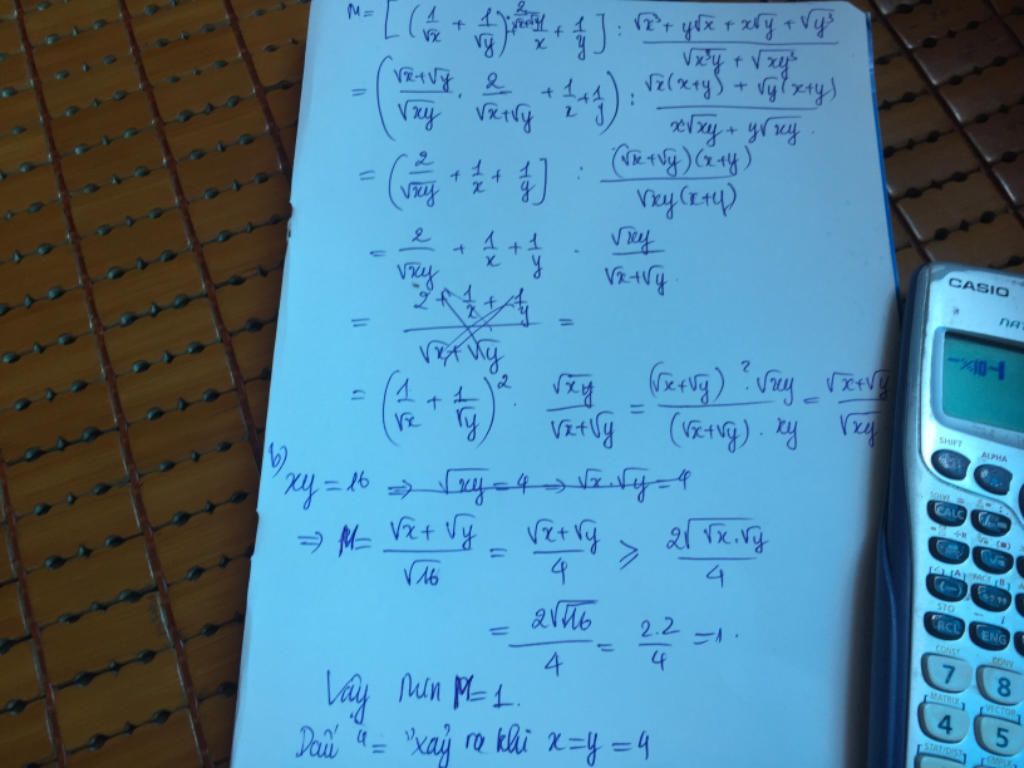 M = [(1/√x + 1/√y) · 2/(√x+√y) + 1/x + 1/y] : (√x³ + y√x + x√y + √y³)/(√x³y + √xy³)
= ((√x+√y)/√xy · 2/(√x+√y) + 1/x + 1/y) : (√x(x+y) + √y(x+y))/(x√xy + y√xy)
= (2/√xy + 1/x + 1/y] : (√x+√y)(x+y)/√xy(x+y)
= 2/√xy + 1/x + 1/y · √xy/(√x+√y)
= (2 + 1/x + 1/y)/(√x+√y) =
= (1/√x + 1/√y)² · √xy/(√x+√y) = (√x+√y)² · √xy/((√x+√y) · xy) = (√x+√y)/√xy
b) xy = 16 ⇒ √xy = 4 ⇒ √x · √y = 4
⇒ M = (√x+√y)/√16 = (√x+√y)/4 ≥ 2√(√x·√y)/4
= 2√√16/4 = 2.2/4 = 1.
Vây Min M = 1.
Dấu "=" xảy ra khi x = y = 4
CASIO
SHIFT
ALPHA
CALC
RCL
ENG
STO
CONST
CONV
7
8
MATRIX
VECTOR
4
5
STAT/DIST